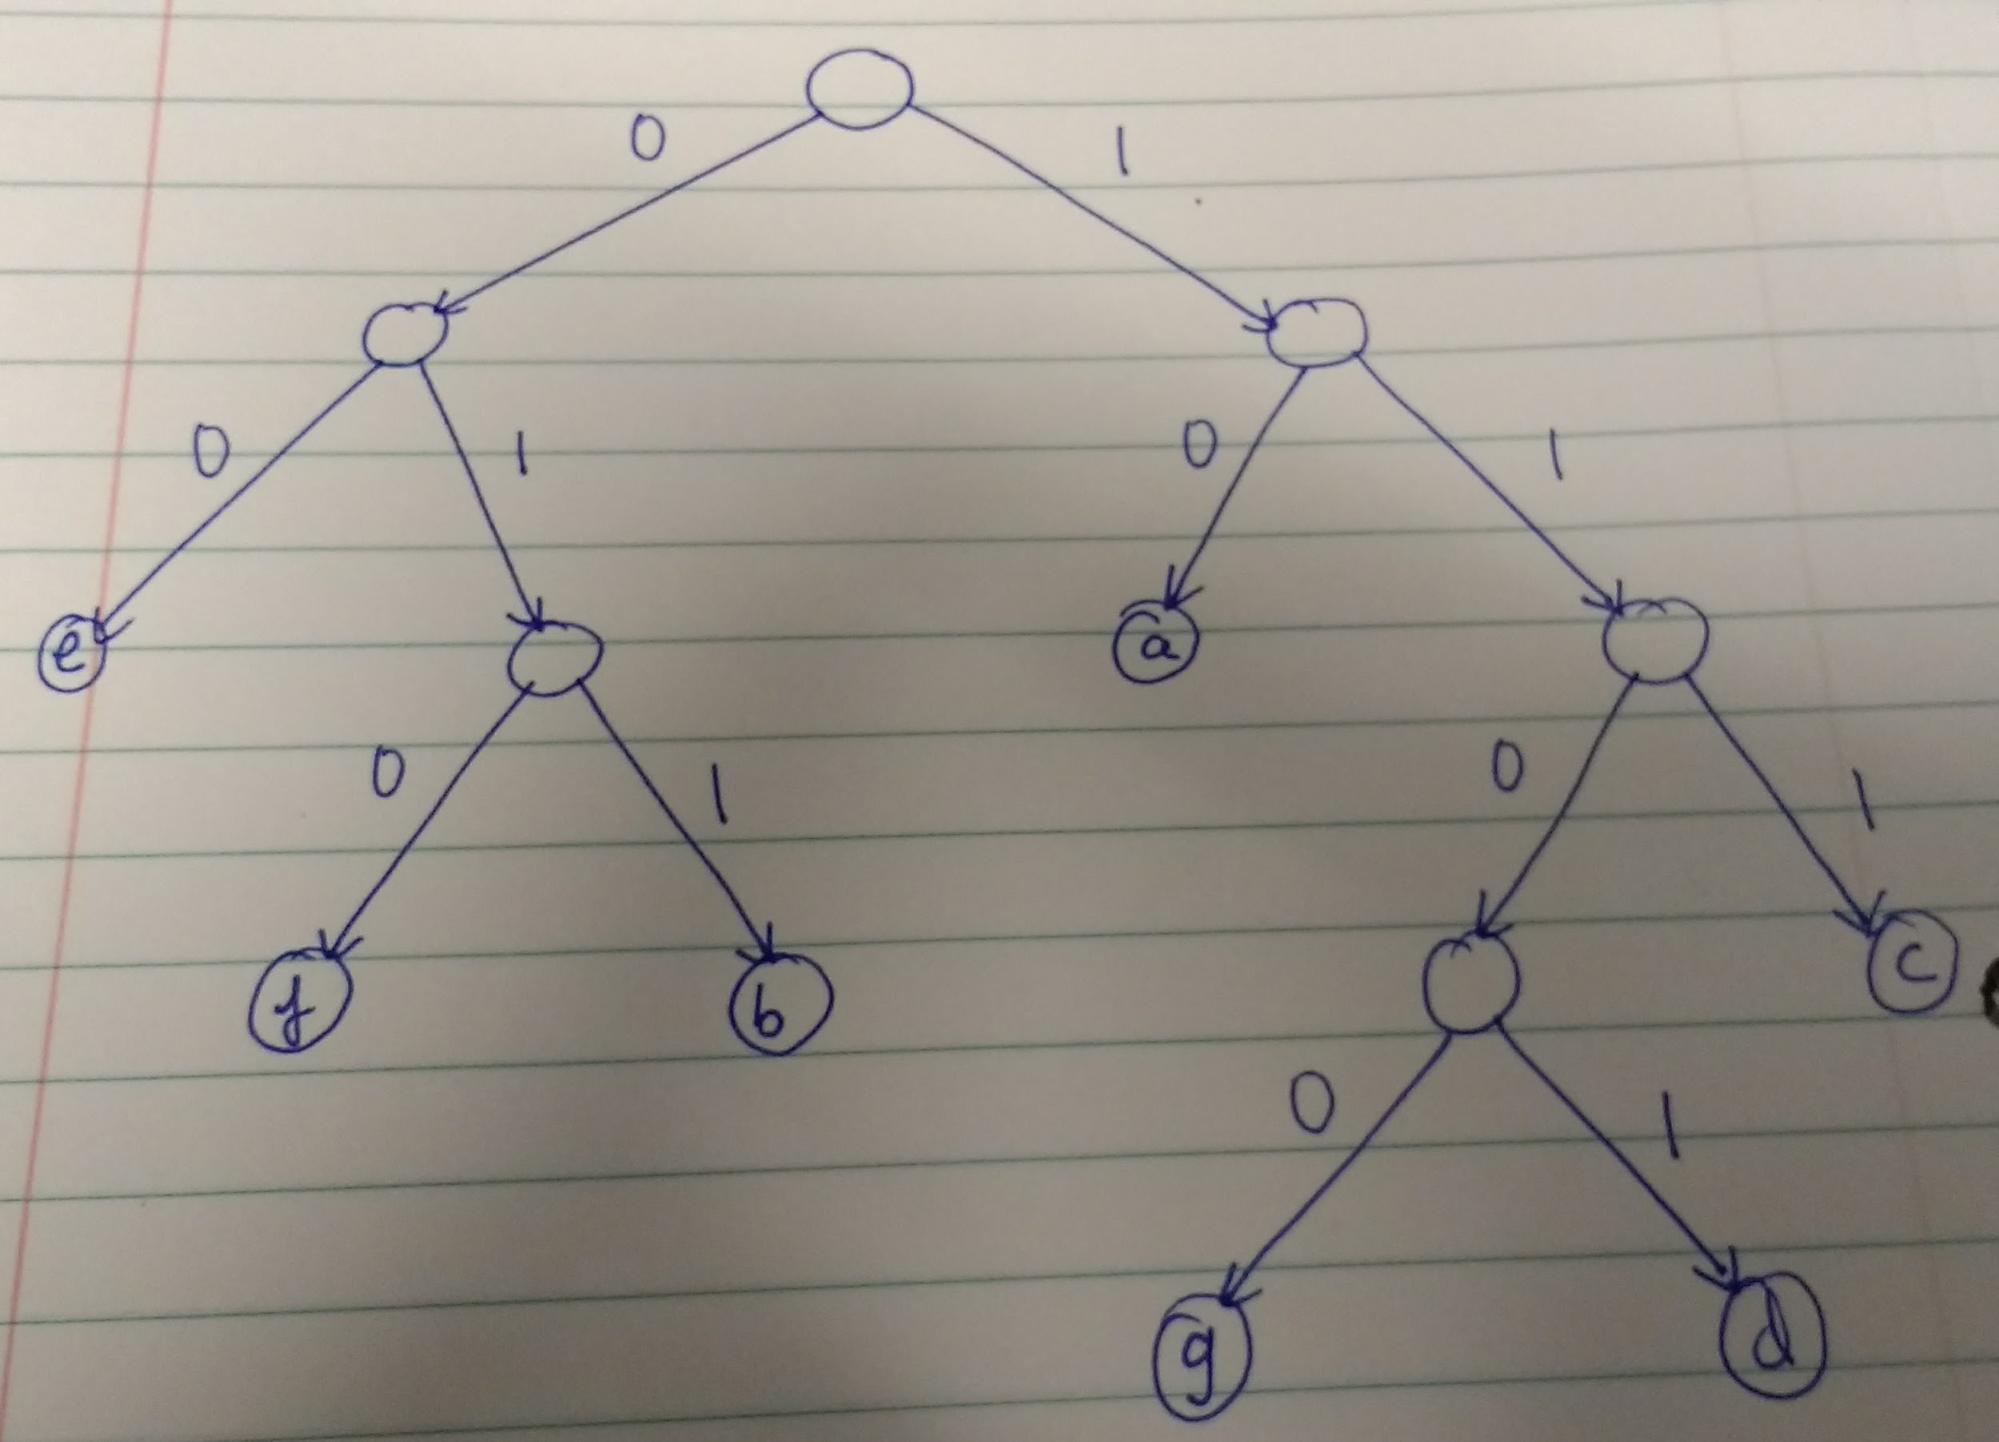 0 1
0 1 0 1
e a
0 1 0 1
f b c
0 1
g d